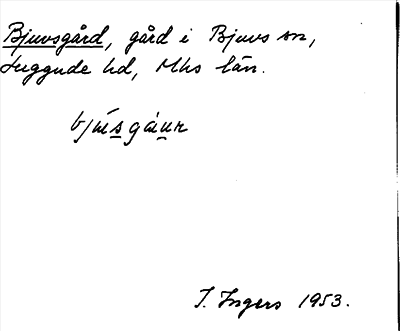 Bjuvsgård, gård i Bjuvs sn,
Luggude hd, Mhs län.
I. Ingers 1953.